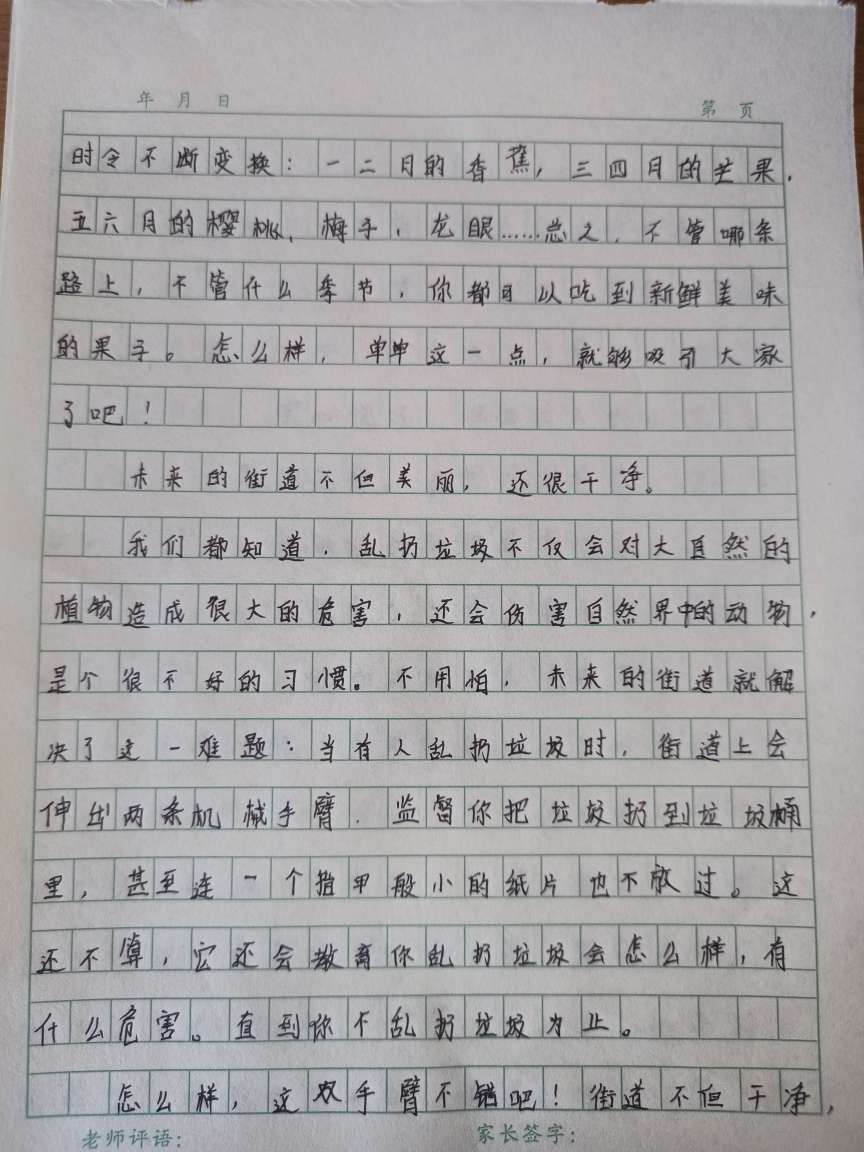 年 月 日
第 页
时令不断变换：一二月的香蕉，三四月的芒果，
五六月的樱桃、梅子、龙眼……总之，不管哪条
路上，不管什么季节，你都可以吃到新鲜美味
的果子。怎么样，单单这一点，就够吸引大家
了吧！
未来的街道不但美丽，还很干净。
我们都知道，乱扔垃圾不仅会对大自然的
植物造成很大的危害，还会伤害自然界中的动物，
是个很不好的习惯。不用怕，未来的街道就解
决了这一难题：当有人乱扔垃圾时，街道上会
伸出两条机械手臂，监督你把垃圾扔到垃圾桶
里，甚至连一个指甲般小的纸片也不放过。这
还不算，它还会教育你乱扔垃圾会怎么样，有
什么危害。直到你不乱扔垃圾为止。
怎么样，这双手臂不错吧！街道不但干净，
老师评语：
家长签字：